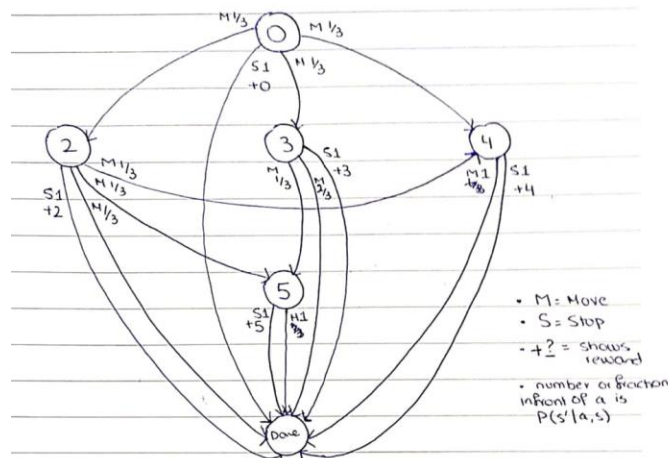 0
M 1/3
M 1/3
M 1/3
S1
+0
2
3
4
M 1/3
M 1/3
M 1/3
S1
+2
M
1/3
M
2/3
S1
+3
M1
S1
+4
5
S1
+5
M1
Done
• M = Move
• S = Stop
- +? = shows
reward
• number or fraction
infront of a is
P(s'|a,s)